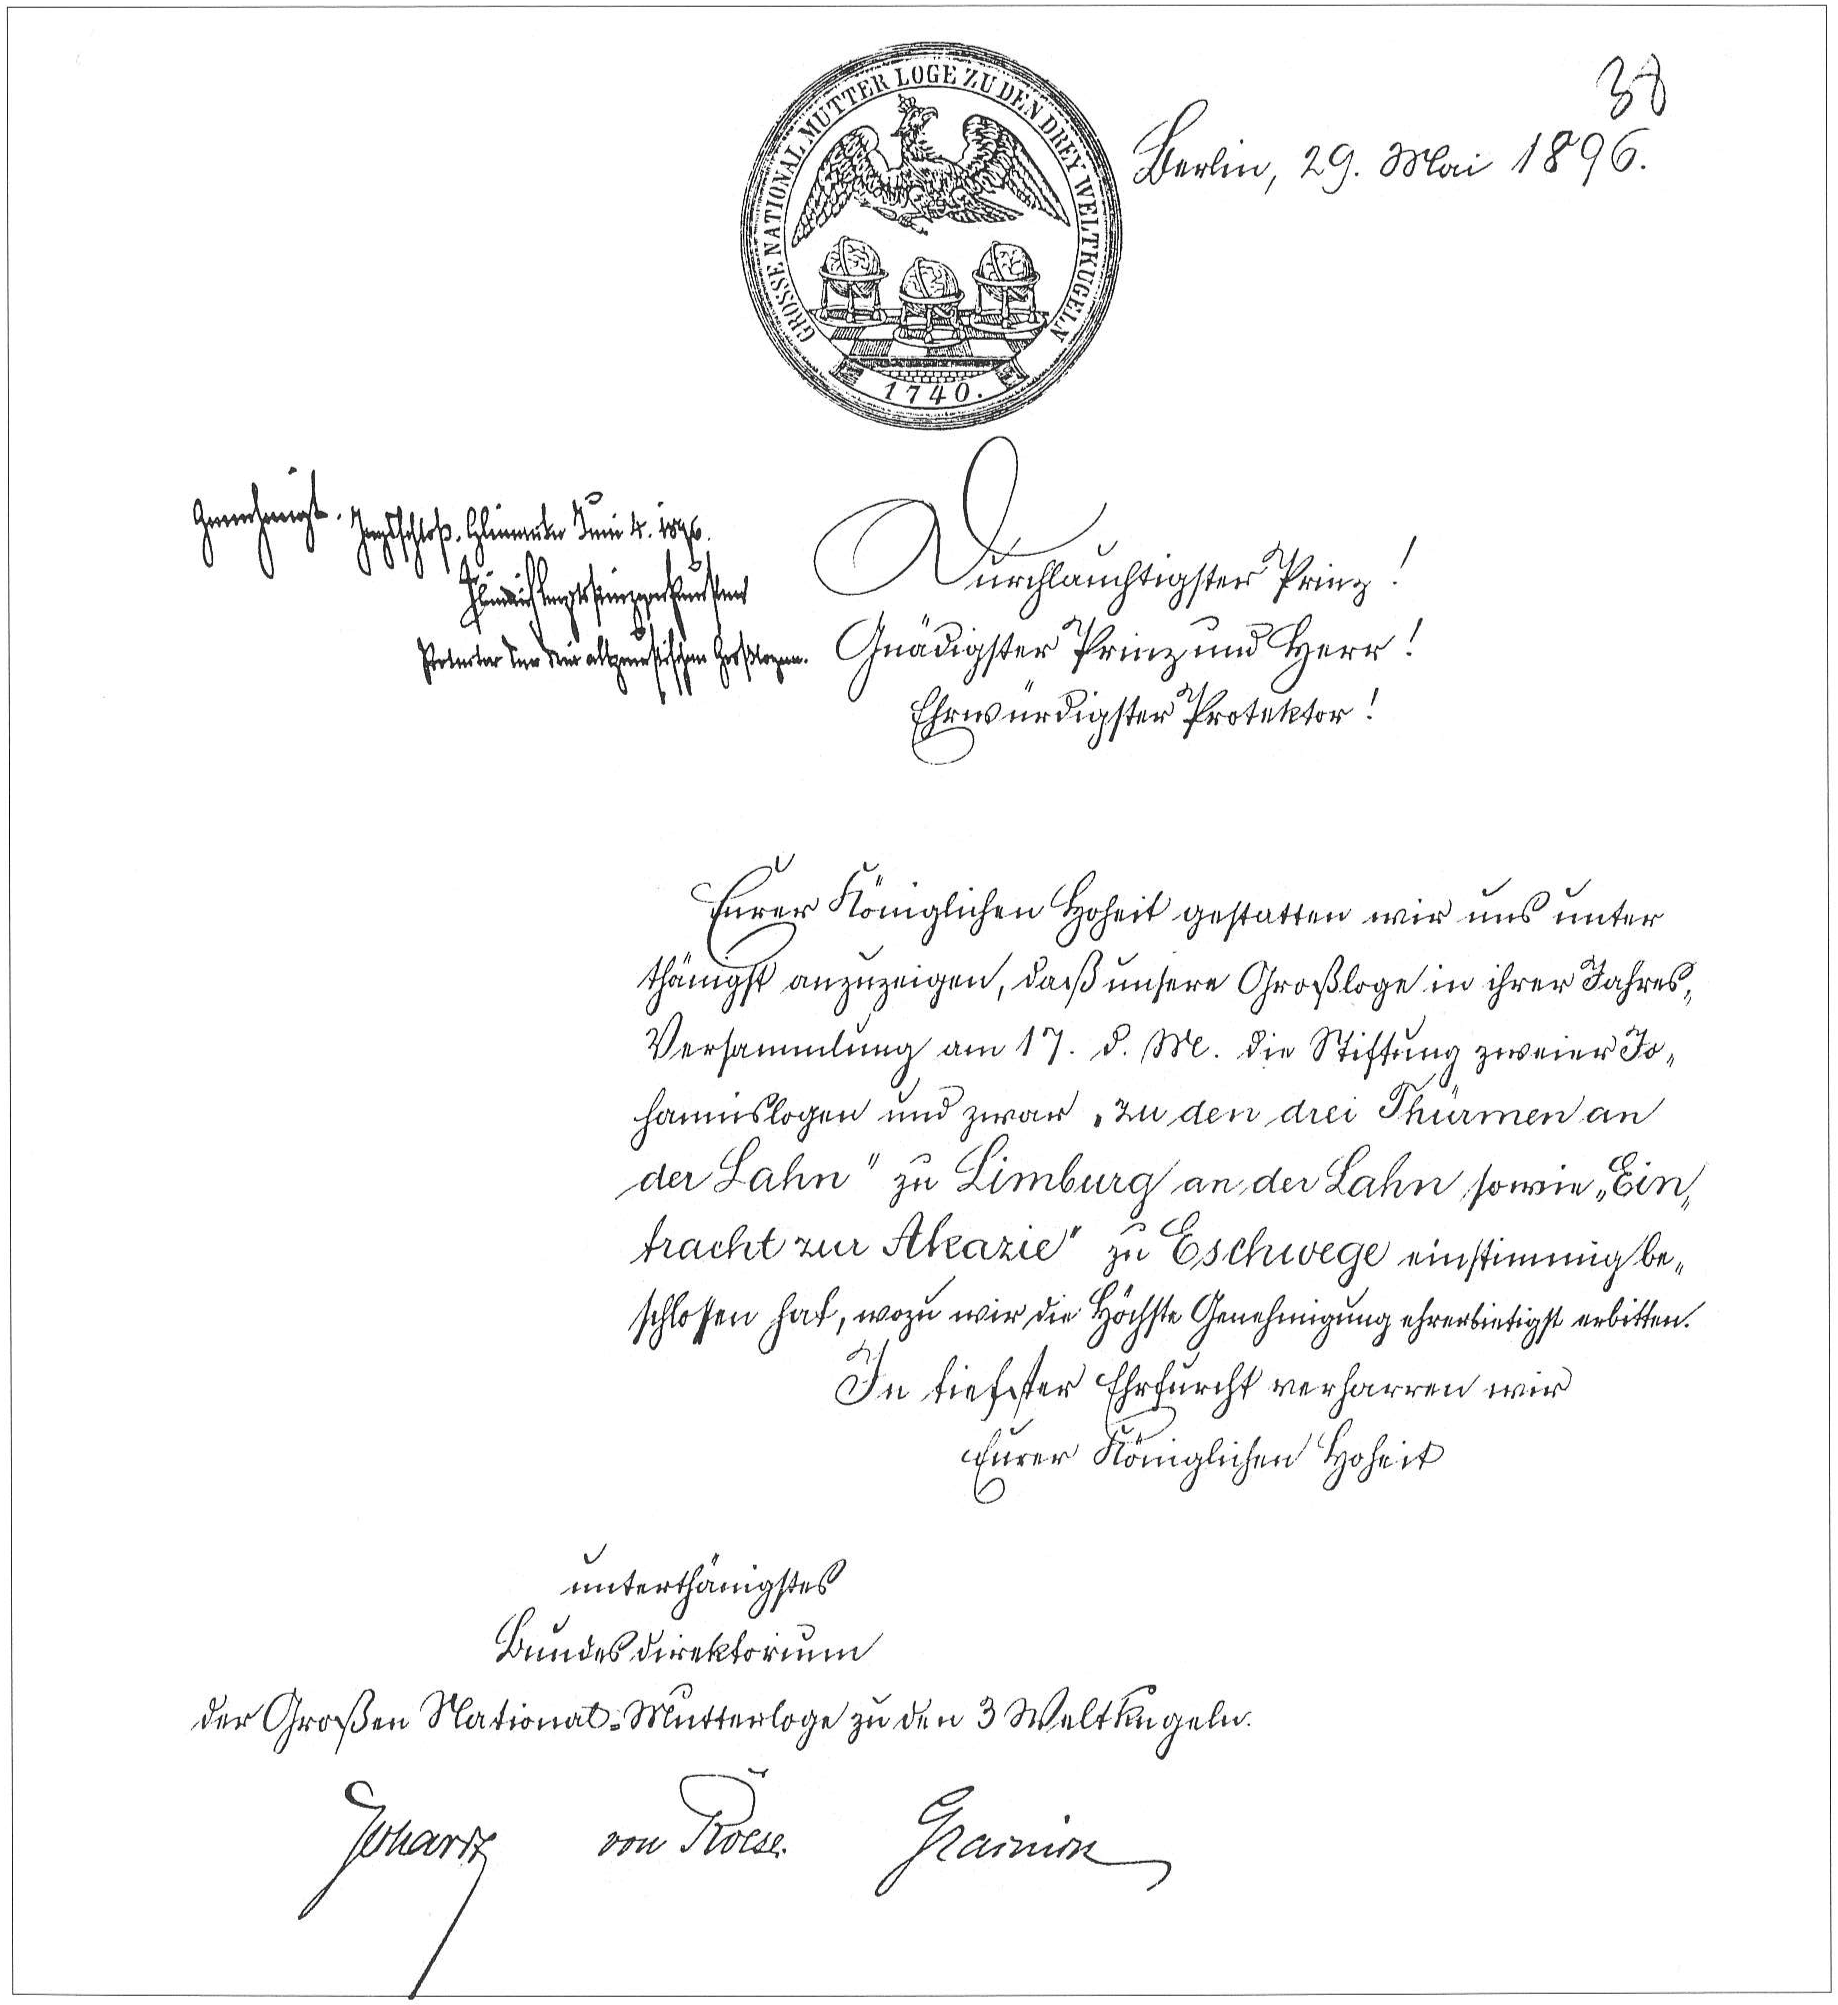 GROSSE NATIONAL MUTTER LOGE ZU DEN DREY WELTKUGELN
1740.
38
Berlin, 29. Mai 1896.
Genehmigt. Jagdschloß. Glienicke Juni 4. 1896.
Protector der drei altpreußischen Großlogen.
Durchlauchtigster Prinz!
Gnädigster Prinz und Herr!
Ehrwürdigster Protektor!
Eurer Königlichen Hoheit gestatten wir uns unter
thänigst anzuzeigen, daß unsere Großloge in ihrer Jahres„
Versammlung am 17. d. M. die Stiftung zweier Jo„
hannislogen und zwar „zu den drei Thürmen an
der Lahn" zu Limburg an der Lahn sowie „Ein„
tracht zur Akazie" zu Eschwege einstimmig be„
schlossen hat, wozu wir die Höchste Genehmigung ehrerbietigst erbitten.
In tiefster Ehrfurcht verharren wir
Eurer Königlichen Hoheit
unterthänigstes
Bundesdirektorium
der Großen National-Mutterloge zu den 3 Weltkugeln.
von Roese.